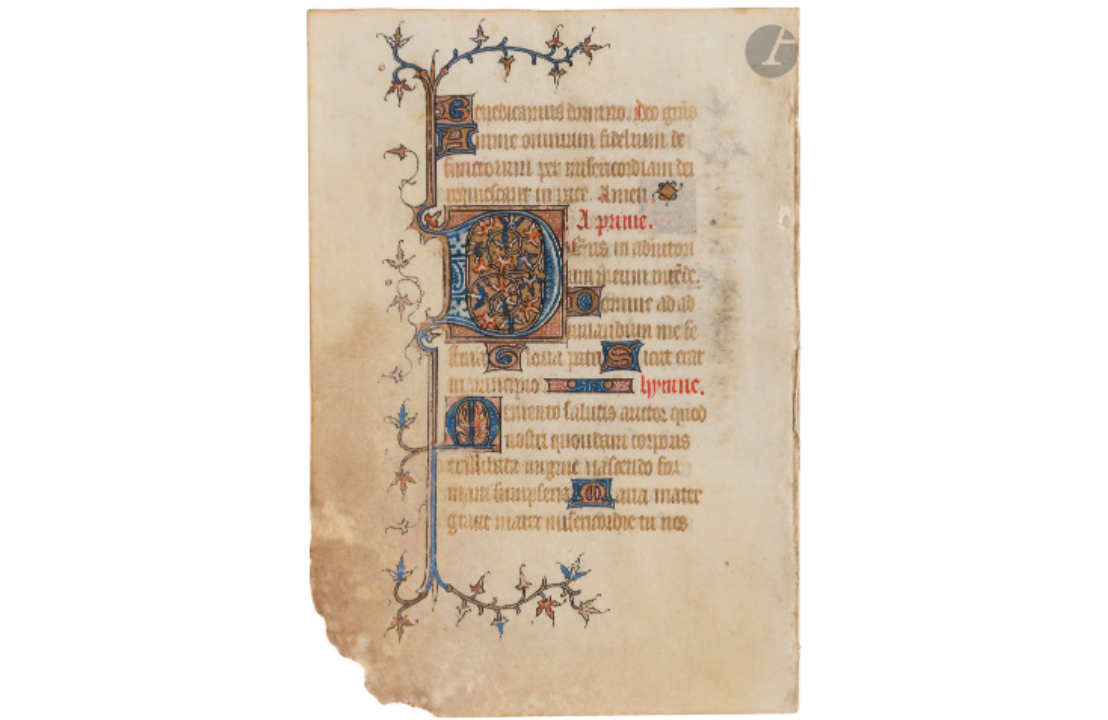 Benedicamus domino. Deo grãs
Anime omnium fidelium de
functorum per misericordiam dei
requiescant in pace. Amen
A prime.
Deus in adiutori
um meum intẽde.
Domine ad ad
iuuandum me fe
stina Gloria patri Sicut erat
in principio hymne.
Memento salutis auctor quod
nostri quondam corporis
ex illibata uirgine nascendo for
mam sumpseris Maria mater
gratie mater misericordie tu nos